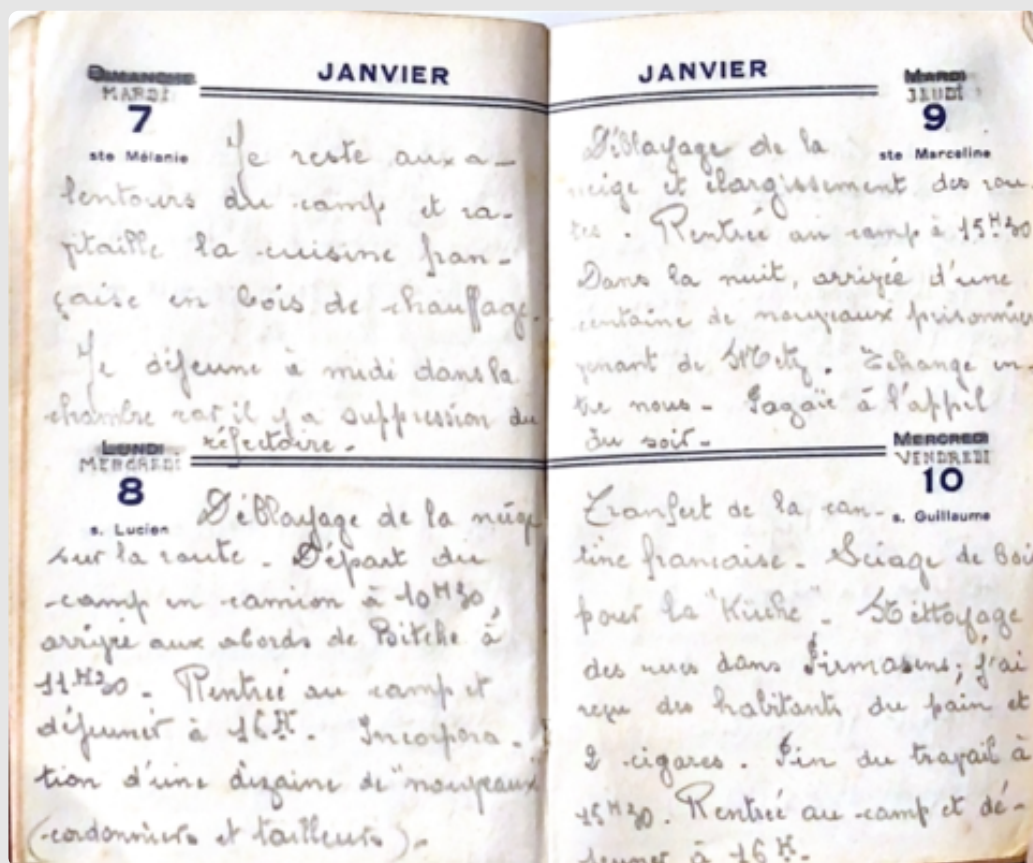 JANVIER
DIMANCHE
MARDI
7
ste Mélanie
Je reste aux a-
lentours du camp et ra-
vitaille la cuisine fran-
çaise en bois de chauffage.
Je déjeune à midi dans la
chambre car il y a suppression du
réfectoire.-
LUNDI
MERCREDI
8
s. Lucien
Déblayage de la neige
sur la route. Départ du
camp en camion à 10H30,
arrivée aux abords de Bitche à
11H30. Rentrée au camp et
déjeuner à 16H. Incorpora-
tion d'une dizaine de "nouveaux"
(cordonniers et tailleurs).-
JANVIER
MARDI
JEUDI
9
ste Marceline
Déblayage de la
neige et élargissement des rou-
tes. Rentrée au camp à 15H30
Dans la nuit, arrivée d'une
centaine de nouveaux prisonniers
venant de Metz. Echange en-
tre nous- Pagaïe à l'appel
du soir-
MERCREDI
VENDREDI
10
s. Guillaume
Transfert de la can-
tine française- Sciage de Bois
pour la "Küche"- Nettoyage
des rues dans Pirmasens; j'ai
reçu des habitants du pain et
2 cigares. Fin du travail à
15H30. Rentrée au camp et dé-
jeuner à 16H.-